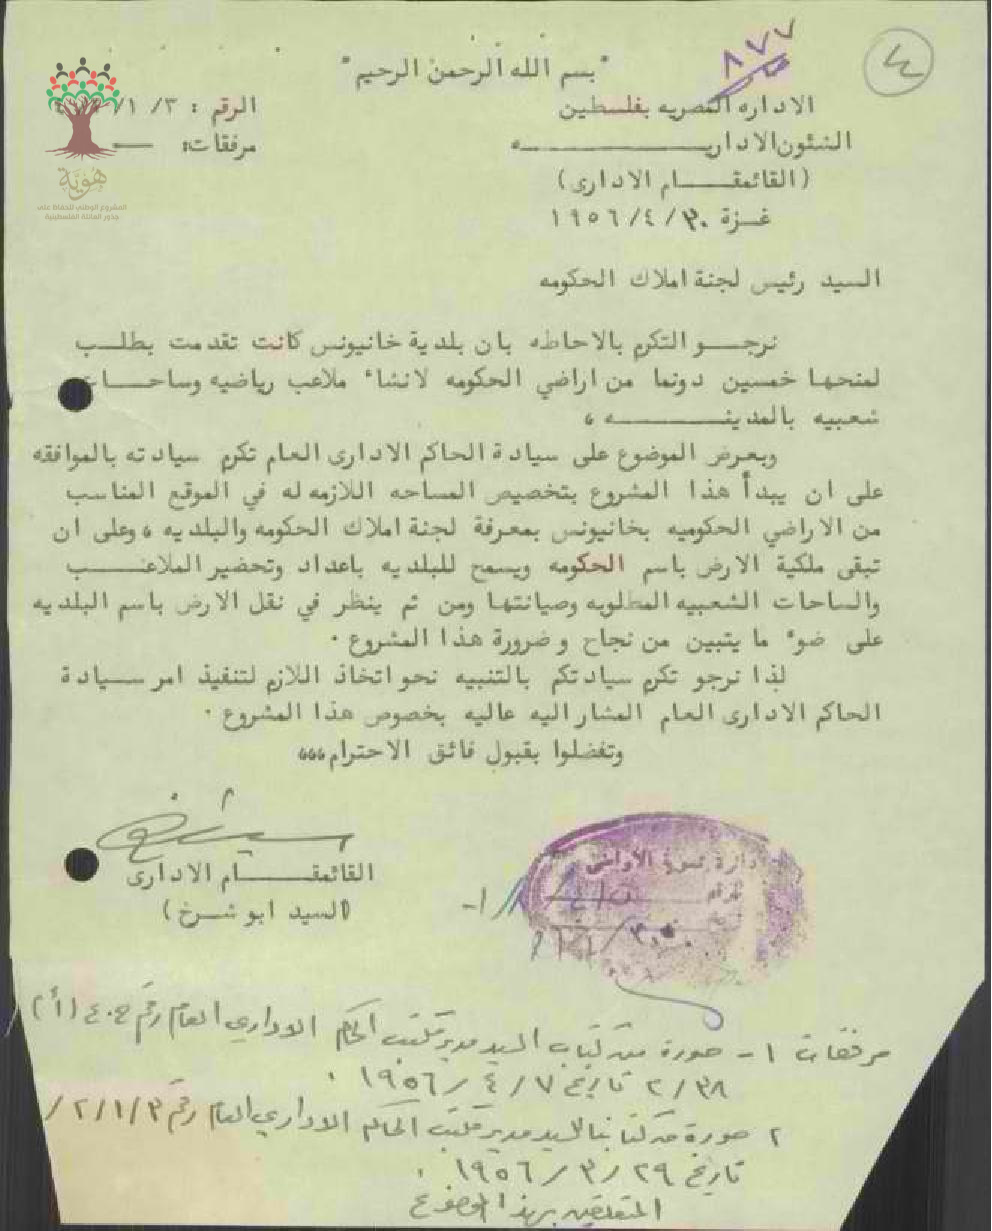 ٨٧٧
"بسم الله الرحمن الرحيم"
الاداره المصريه بفلسطين
الشئون الاداريـــــــــه
(القائمقــــام الادارى)
غـزة ٣٠/ ٤/ ١٩٥٦
الرقم : ٣/ ١/
مرفقات: —
هوية
المشروع الوطني للحفاظ على
جذور العائلة الفلسطينية
السيد رئيس لجنة املاك الحكومه
نرجــو التكرم بالاحاطه بان بلدية خانيونس كانت تقدمت بطلــب
لمنحها خمسين دونما من اراضي الحكومه لانشاء ملاعب رياضيه وساحــات
شعبيه بالمدينـــــــه ،
وبعرض الموضوع على سيادة الحاكم الادارى العام تكرم سيادته بالموافقه
على ان يبدأ هذا المشروع بتخصيص المساحه اللازمه له في الموقع المناسب
من الاراضي الحكوميه بخانيونس بمعرفة لجنة املاك الحكومه والبلديه ، وعلى ان
تبقى ملكية الارض باسم الحكومه ويسمح للبلديه باعداد وتحضير الملاعـــب
والساحات الشعبيه المطلوبه وصيانتها ومن ثم ينظر في نقل الارض باسم البلديه
على ضوء ما يتبين من نجاح و ضرورة هذا المشروع .
لذا نرجو تكرم سيادتكم بالتنبيه نحو اتخاذ اللازم لتنفيذ امر ســيادة
الحاكم الادارى العام المشار اليه عاليه بخصوص هذا المشروع .
وتفضلوا بقبول فائق الاحترام ،،،
القائمقــــــام الادارى
(السيد ابو شـرخ)
ادارة تسوية الأراضي
مرفقات ١- صورة من كتاب السيد مدير مكتب الحاكم الاداري العام رقم ح.٤ (أ)
٢/٣٨ تاريخ ٧/ ٤/ ١٩٥٦ .
٢ صورة من كتاب السيد مدير مكتب الحاكم الاداري العام رقم ٣/١/٢/
تاريخ ٢٩/ ٣/ ١٩٥٦ .
المتعلقين بهذا الموضوع